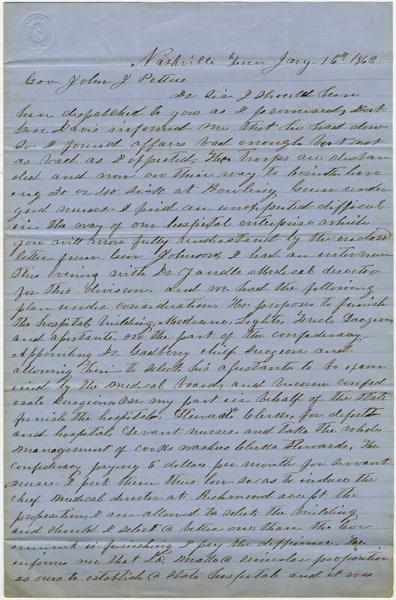 Nashville Tenn Jany 16th 1862
Gov John J Pettus
Dr Sir I should have
been dispatched to you as I promised, but
Gen Davis informed me that he had done
so I found affairs bad enough but not
as bad as I expected, The troops are disban
ded and now on their way to Corinth leav
ing 50 or 60 sick at Bowling Green under
good nurses I find an unexpected difficul
in the way of our hospital enterprise which
you will more fully understand by the enclosed
letter from Gen Johnson, I had an interview
this evening with Dr Yandle Medical director
for this Division and we had the following
plan under consideration. He proposes to furnish
the hospital building, Medicine, Lights, Fuel,
and assistants, on the part of the confederacy
appointing Dr Gadberry chief surgeon and
allowing him to select his assistants to be exam
ined by the medical board, and become confed
erate surgeons On my part in behalf of the State
furnish the hospitals, Stewards Clerks, for depot
and hospitals, Servant nurses and take the whole
management of cooks washers clerks stewards, The
confederacy paying 6 dollars per month for servant
nurses I put them this low so as to induce the
chief Medical director at Richmond accept the
proposition, I am allowed to select the building
and should I select a better one than the Gov
ernment is furnishing I pay the difference. He
informs me that La, made a similar proposition
as ours to establish a State hospital and it was